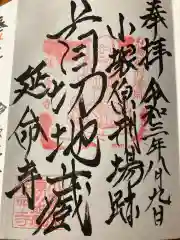 奉拝 令和三年八月九日
小塚原刑場跡
首切地蔵
延命寺